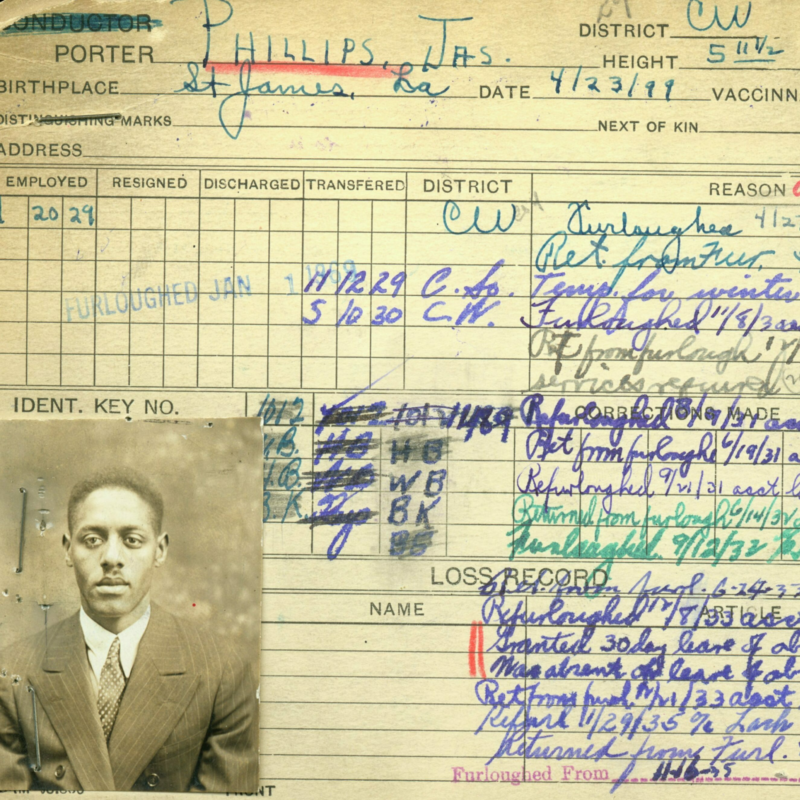 CONDUCTOR
PORTER PHILLIPS, JAS. DISTRICT CW
HEIGHT 5 11 1/2
BIRTHPLACE St James, La DATE 4/23/99 VACCINN
DISTINGUISHING MARKS NEXT OF KIN
ADDRESS
EMPLOYED RESIGNED DISCHARGED TRANSFERED DISTRICT REASON
20 29 CW Furloughed 4/2
Ret. from Fur.
FURLOUGHED JAN 1
11 12 29 C. So. Temp. for winter
5 10 30 C.W. Furloughed 11/8/3
Ret from furlough
services required
IDENT. KEY NO. CORRECTIONS MADE
1012 1012 Refurloughed
H B Ret from furlough 6/19/31
W B Refurloughed 9/21/31 acct
B.K. BK Returned from furlough 6/14/32
Furloughed 9/12/32
LOSS RECORD
furl. 6-24-33
NAME ARTICLE
Refurloughed 12/8/33 acct
Granted 30 day leave of ab
Was absent on leave of ab
Ret from furl. 12/21/33 acct
Refurl 1/29/35 % Lack
Returned from Furl.
Furloughed From 11-16-35
FRONT